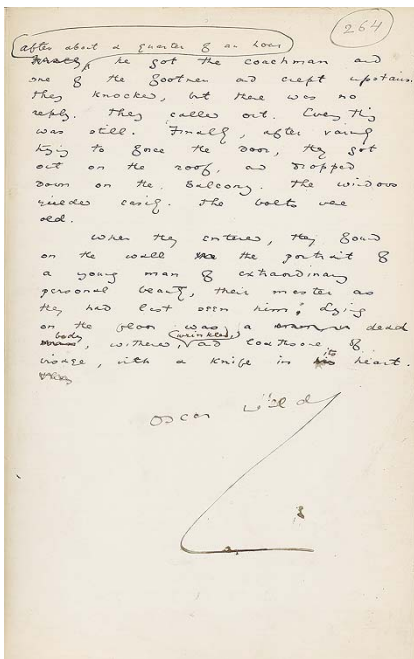 264
after about a quarter of an hour
he got the coachman and
one of the footmen and crept upstairs.
They knocked, but there was no
reply. They called out. Every thing
was still. Finally, after vainly
trying to force the door, they got
out on the roof, and dropped
down on the balcony. The windows
yielded easily. The bolts were
old.
When they entered, they found
on the wall the portrait of
a young man of extraordinary
personal beauty, their master as
they had last seen him. Lying
on the floor was a dead
body, withered, wrinkled, and loathsome of
visage, with a knife in its heart.
Oscar Wilde